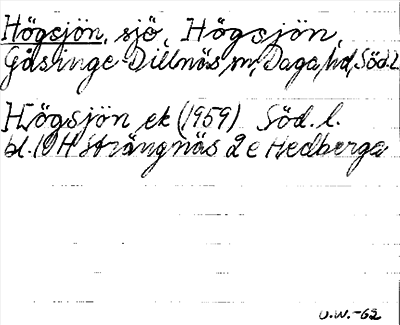 Högsjön, sjö, Högsjön,
Gåsinge-Dillnäs, sn, Daga, hd, Söd. l.
Högsjön ek (1959) Söd. l.
bl. 10 H Strängnäs 2 e Hedberga
O.W.-62